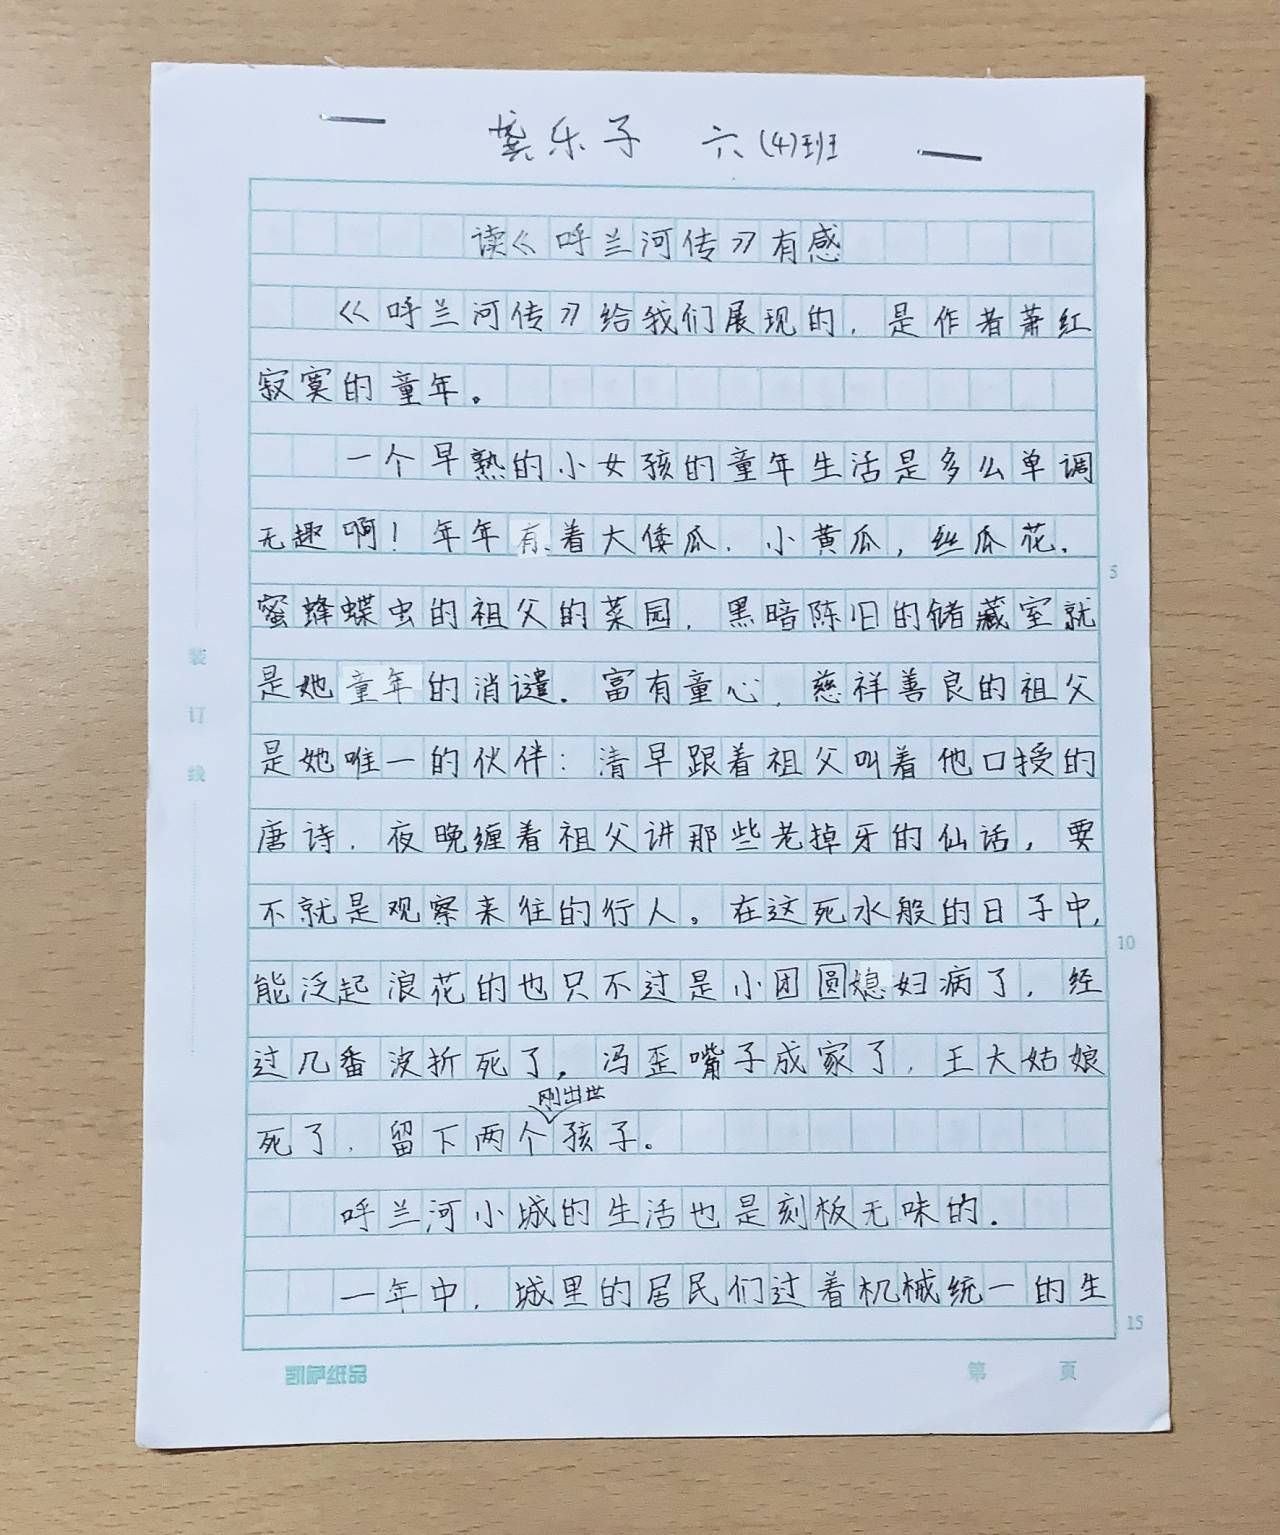 龚乐子 六(4)班
读《呼兰河传》有感
《呼兰河传》给我们展现的,是作者萧红
寂寞的童年。
一个早熟的小女孩的童年生活是多么单调
无趣啊!年年有着大倭瓜、小黄瓜,丝瓜花、
蜜蜂蝶虫的祖父的菜园,黑暗陈旧的储藏室就
是她童年的消谴。富有童心,慈祥善良的祖父
是她唯一的伙伴:清早跟着祖父叫着他口授的
唐诗,夜晚缠着祖父讲那些老掉牙的仙话,要
不就是观察来往的行人。在这死水般的日子中,
能泛起浪花的也只不过是小团圆媳妇病了,经
过几番波折死了。冯歪嘴子成家了,王大姑娘
刚出世
死了,留下两个孩子。
呼兰河小城的生活也是刻板无味的.
一年中,城里的居民们过着机械统一的生
装
订
线
5
10
15
凯萨纸品
第 页